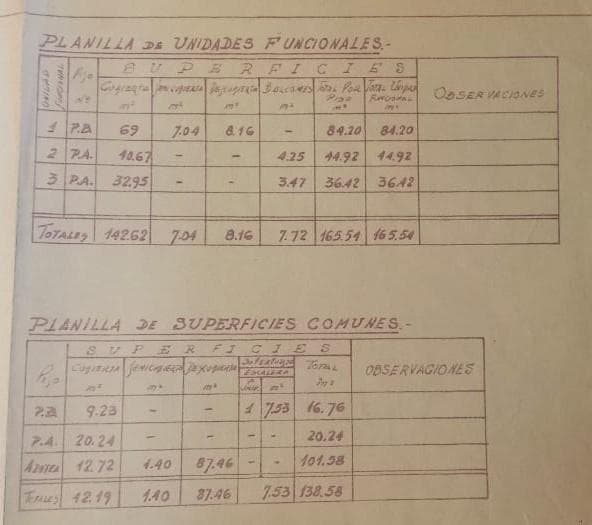 PLANILLA DE UNIDADES FUNCIONALES.-
UNIDAD FUNCIONAL Piso Nº SUPERFICIES OBSERVACIONES
Cubierta m² Semicubierta m² Descubierta m² Balcones m² Total Por Piso m² Total Unidad Funcional m²
1 P.B. 69 7.04 8.16 - 84.20 84.20
2 P.A. 40.67 - - 4.25 44.92 44.92
3 P.A. 32.95 - - 3.47 36.42 36.42
TOTALES 142.62 7.04 8.16 7.72 165.54 165.54
PLANILLA DE SUPERFICIES COMUNES.-
Piso SUPERFICIES OBSERVACIONES
Cubierta m² Semicubierta m² Descubierta m² ESCALERA m² TOTAL m²
P.B. 9.23 - - 1 7.53 16.76
P.A. 20.24 - - - - 20.24
AZOTEA 12.72 1.40 87.46 - - 101.58
TOTALES 42.19 1.40 87.46 7.53 138.58